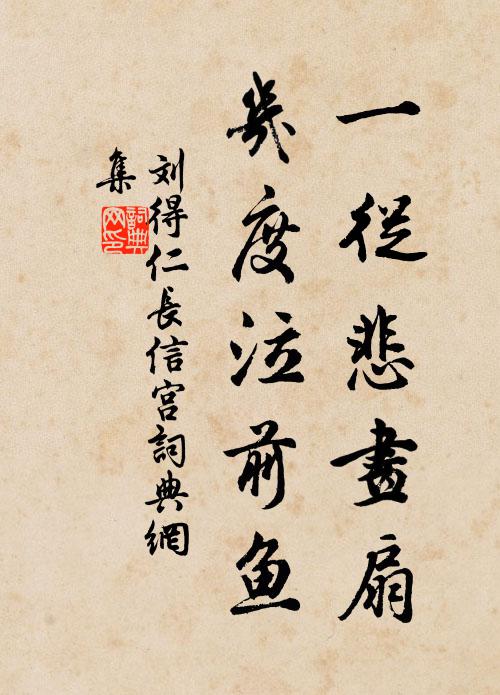 一從悲畫扇
幾度泣前魚
刘得仁長信宮詞典網
集
詞典網印